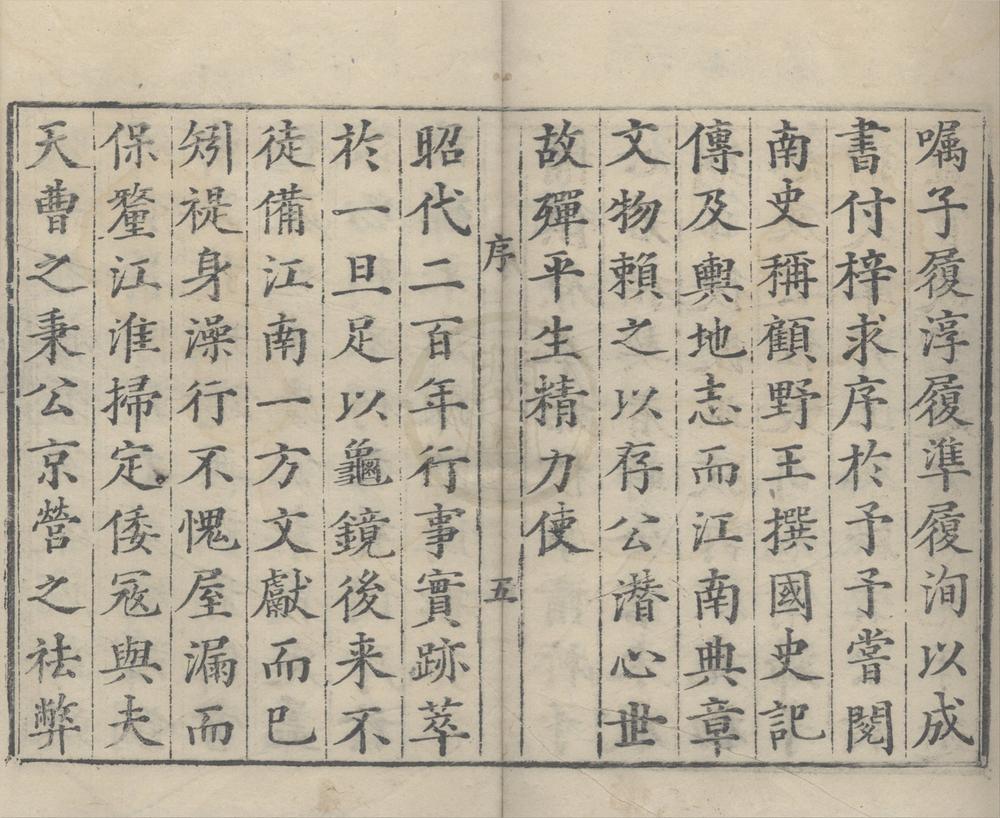 嘱子履淳履準履洵以成
書付梓求序於予予嘗閱
南史稱顧野王撰國史記
傳及輿地志而江南典章
文物賴之以存公潛心世
故彈平生精力使
序 五
昭代二百年行事實跡萃
於一旦足以龜鏡後来不
徒備江南一方文獻而已
矧禔身澡行不愧屋漏而
保釐江淮掃定倭冦與夫
天曹之秉公京營之祛弊